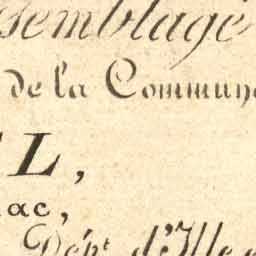 semblage
de la Commune
L,
ac,
Dépt. d'Ille